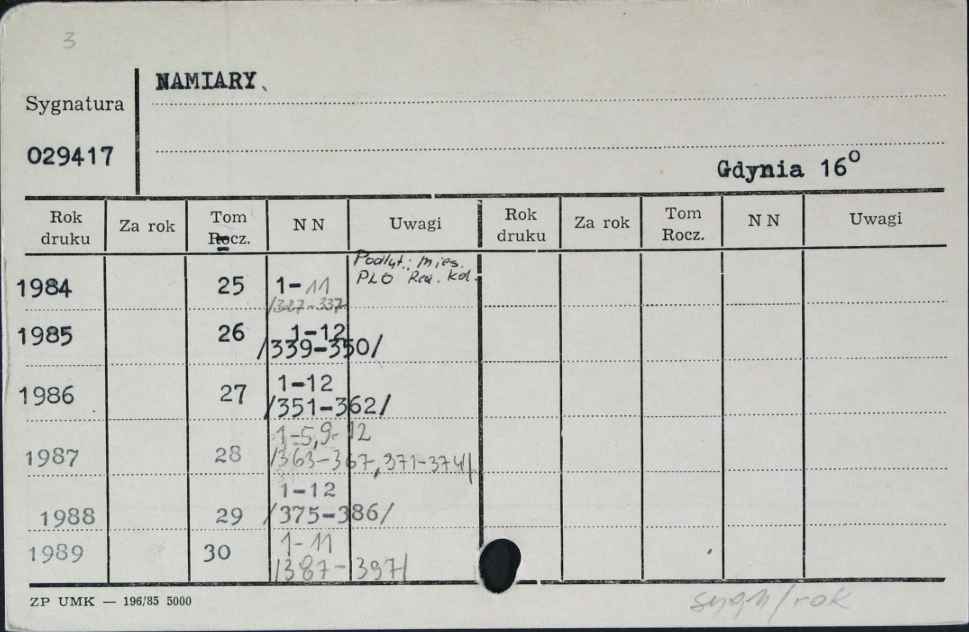 3
NAMIARY.
Sygnatura
029417
Gdynia 16°
Rok druku Za rok Tom Rocz. N N Uwagi Rok druku Za rok Tom Rocz. N N Uwagi
Podtyt.: mies.
1984 25 1-11 PLO Red. Kol.
/327-337
1985 26 1-12
/339-350/
1986 27 1-12
/351-362/
1-5,9-12
1987 28 /363-367,371-374/
1-12
1988 29 /375-386/
1989 30 1-11
/387-397/
ZP UMK — 196/85 5000
sygn/rok